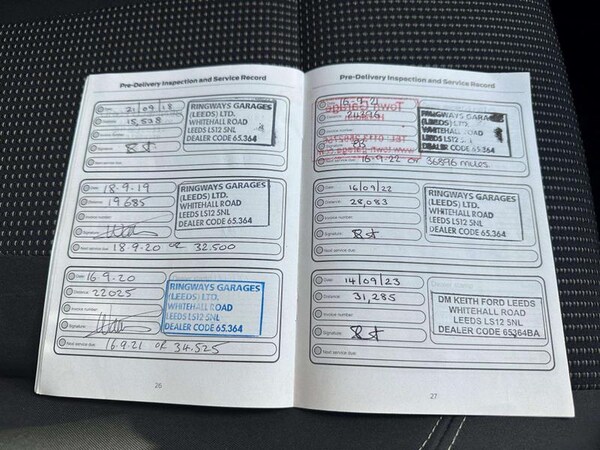 Pre-Delivery Inspection and Service Record
Date: 21/09/18
Distance: 15,538
Invoice number:
Signature:
RINGWAYS GARAGES
(LEEDS) LTD.
WHITEHALL ROAD
LEEDS LS12 5NL
DEALER CODE 65.364
Date: 18.9.19
Distance: 19685
Invoice number:
Signature:
Next service due: 18.9.20 or 32.500
RINGWAYS GARAGES
(LEEDS) LTD.
WHITEHALL ROAD
LEEDS LS12 5NL
DEALER CODE 65.364
Date: 16.9.20
Distance: 22025
Invoice number:
Signature:
Next service due: 16.9.21 or 34.525
RINGWAYS GARAGES
(LEEDS) LTD.
WHITEHALL ROAD
LEEDS LS12 5NL
DEALER CODE 65.364
26
Pre-Delivery Inspection and Service Record
16.9.21
16.9.22 or 36896 miles
RINGWAYS GARAGES
(LEEDS) LTD.
WHITEHALL ROAD
LEEDS LS12 5NL
DEALER CODE 65.364
Date: 16/09/22
Distance: 28,083
Invoice number:
Signature:
Next service due:
RINGWAYS GARAGES
(LEEDS) LTD.
WHITEHALL ROAD
LEEDS LS12 5NL
DEALER CODE 65.364
Date: 14/09/23
Distance: 31,285
Invoice number:
Signature:
Next service due:
DM KEITH FORD LEEDS
WHITEHALL ROAD
LEEDS LS12 5NL
DEALER CODE 65364BA
27